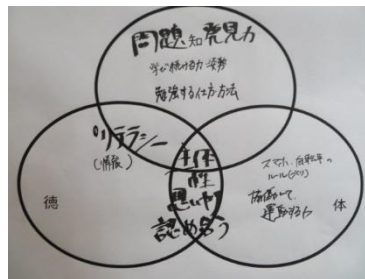 問題知発見力
学び続ける力 姿勢
勉強する仕方・方法
リテラシー
(情報)
主体
性
思いやり
認め合う
徳
スマホ、自転車の
協働して、
運動する力
体